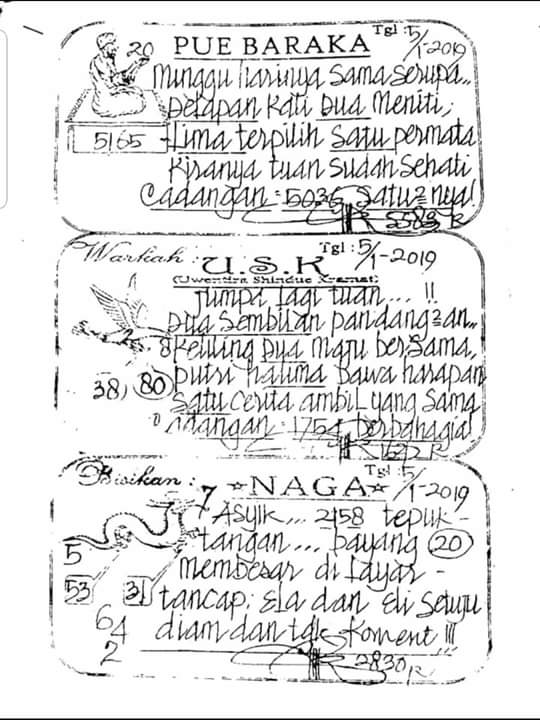 20 PUE BARAKA Tgl : 5/1-2019
Minggu harinya sama serupa..
Delapan Kati Dua Meniti,
5165 -Lima terpilih satu permata
Kiranya tuan sudah sehati
Cadangan : 5036 Satu² nya!
5583 R
Warkah : U.S.K Tgl : 5/1-2019
(Uwentira Shindue Kramat)
Jumpa lagi tuan... !!
Dua Sembilan pandang²an...
8 Keliling Dua maju bersama,
38) 80 putri halima bawa harapan
Satu cerita ambil yang sama
Cadangan : 1754 berbahagia!
1692 R
Bisikan : ☆NAGA☆ Tgl : 5/1-2019
7 Asyik... 2158 tepuk -
tangan... bayang 20
5 membesar di layar -
53 31 tancap; Ela dan Eli setuju
64 diam dan tdk koment !!!
2 2830 R